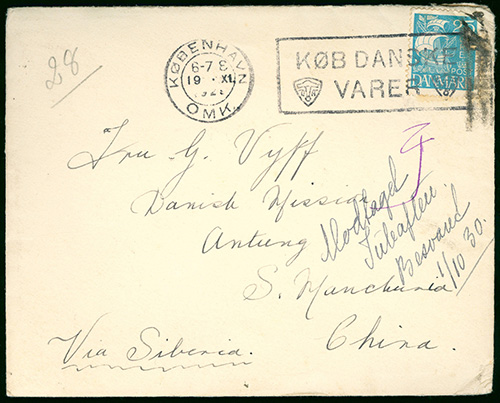 28
KØBENHAVN
6-7 E
19 XI
OMK.
KØB DANSKE
VARER
25
DANMARK
Fru G. Vyff
Danish Mission
Antung
S. Manchuria
China.
Via Siberia.
Modtaget
Juleaften.
Besvaret
1/10 30.